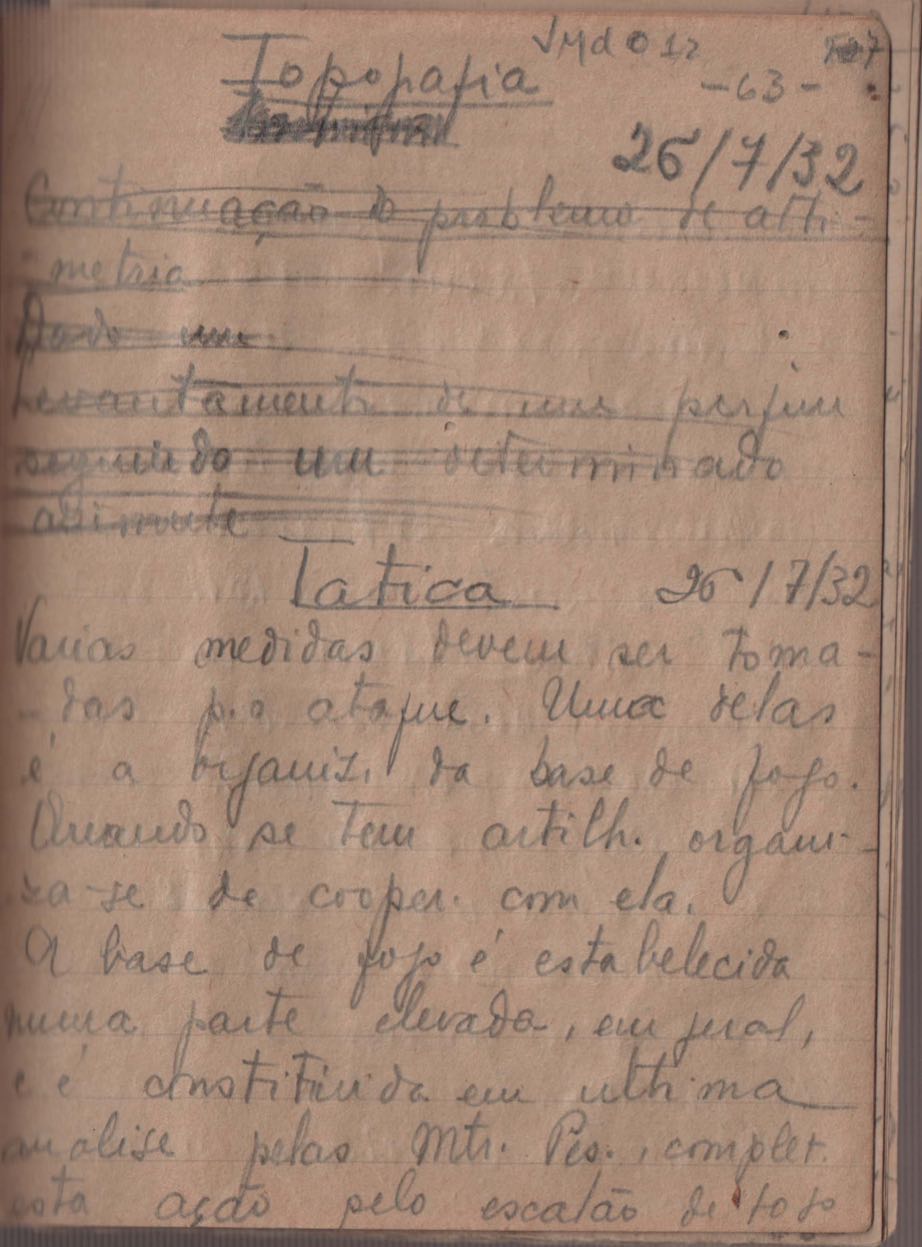 JMdO12
Topografia
-63-
26/7/32
Continuação do problema de alti-
metria
Dado um
Levantamento de um perfim
seguindo um determinado
azimute
Tatica 26/7/32
Varias medidas devem ser toma-
-das p.o ataque. Uma delas
é a organiz. da base de fogo.
Quando se tem artilh. organi-
za-se de cooper. com ela.
A base de fogo é estabelecida
numa parte elevada, em geral,
e é constituida em ultima
analise pelas Mtr. Pes., complet.
esta ação pelo escalão de fogo